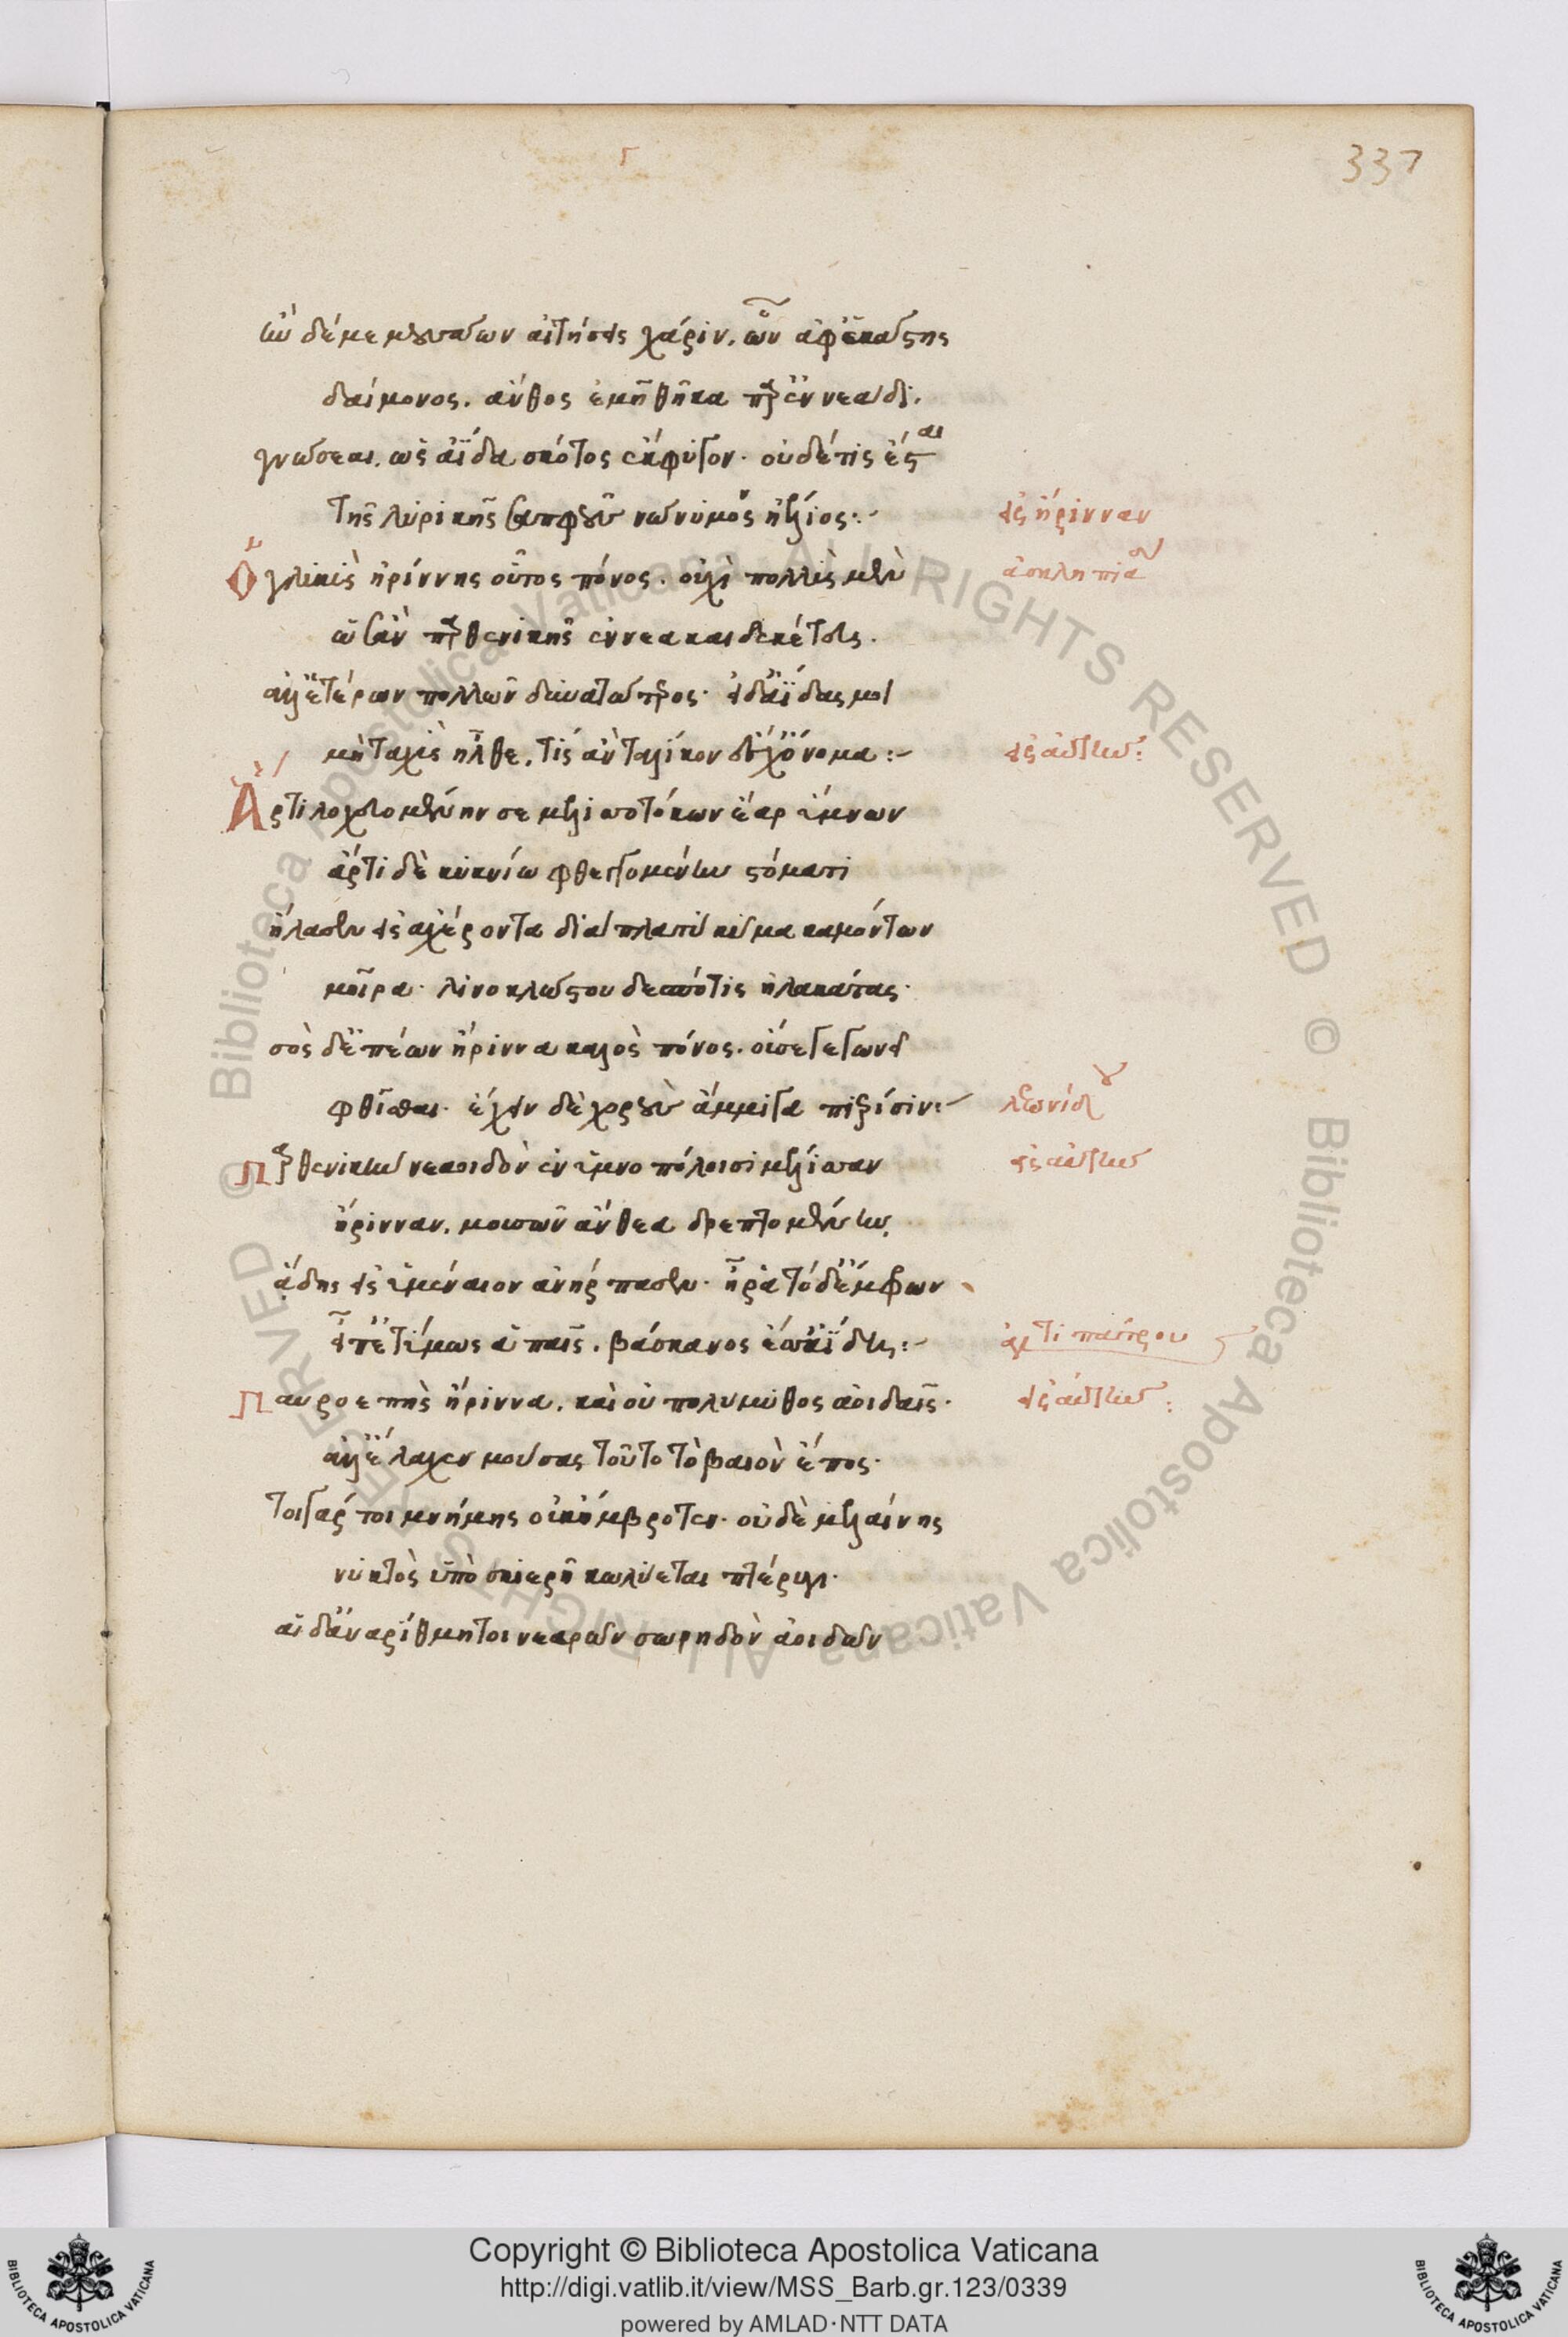 337
ἢν δέ με μουσάων αἰτήσεις χάριν, ὧν ἀφ' ἑκάστης
δαίμονος, ἄνθος ἐμῆ θῆκα παρ' ἐννεάδι.
γνώσεαι, ὡς ἀΐδα σκότος ἔκφυγον. οὐδέ τις ἔσται
τῆς λυρικῆς Σαπφοῦς νώνυμος ἠέλιος:
εἰς ἤρινναν
Ὁ γλυκὺς ἠρίννης οὗτος πόνος. οὐχὶ πολὺς μὲν
ἀσκληπιάδου
ὡς ἂν παρθενικῆς ἐννεακαιδεκέτους.
ἀλλ' ἑτέρων πολλῶν δυνατώτερος. εἰ δ' ἀΐδας μοι
μὴ ταχὺς ἦλθε, τίς ἂν ταλίκον ἔσχ' ὄνομα:
εἰς αὐτήν:
Ἄρτι λοχευομένην σε μελισσοτόκων ἔαρ ὕμνων
ἄρτι δὲ κυκνίω φθεγγομένην στόματι
ἤλασεν εἰς ἀχέροντα διὰ πλατὺ κῦμα καμόντων
μοῖρα. λινοκλώστου δεσπότις ἠλακάτας.
σὸς δ' ἐπέων ἤριννα καλὸς πόνος. οὔ σε γεγωνεῖ
φθῖσθαι. ἔχειν δὲ χοροὺς ἄμμιγα πιερίσιν:
λεωνίδου
Παρθενικὴν νεαοιδὸν ἐν ὑμνοπόλοισι μέλισσαν
εἰς αὐτήν
ἤρινναν, μουσῶν ἄνθεα δρεπτομένην,
ἅδης εἰς ὑμέναιον ἀνήρπασεν. ἦ ῥα τόδ' ἔμφρων
εἶπ' ἐτύμως ἁ παῖς. βάσκανος ἔσσ' ἀΐδη:
ἀντιπάτρου
Παυροεπὴς ἤριννα, καὶ οὐ πολύμυθος ἀοιδαῖς.
εἰς αὐτήν:
ἀλλ' ἔλαχεν μούσας τοῦτο τὸ βαιὸν ἔπος.
τοιγάρ τοι μνήμης οὐκ ἤμβροτεν. οὐδὲ μελαίνης
νυκτὸς ὑπὸ σκιερῆ κωλύεται πτέρυγι.
αἱ δ' ἀναρίθμητοι νεαρῶν σωρηδὸν ἀοιδῶν
© Biblioteca Apostolica Vaticana ALL RIGHTS RESERVED © Biblioteca Apostolica Vaticana ALL RIGHTS RESERVED
Copyright © Biblioteca Apostolica Vaticana
http://digi.vatlib.it/view/MSS_Barb.gr.123/0339
powered by AMLAD·NTT DATA
BIBLIOTECA APOSTOLICA VATICANA
BIBLIOTECA APOSTOLICA VATICANA